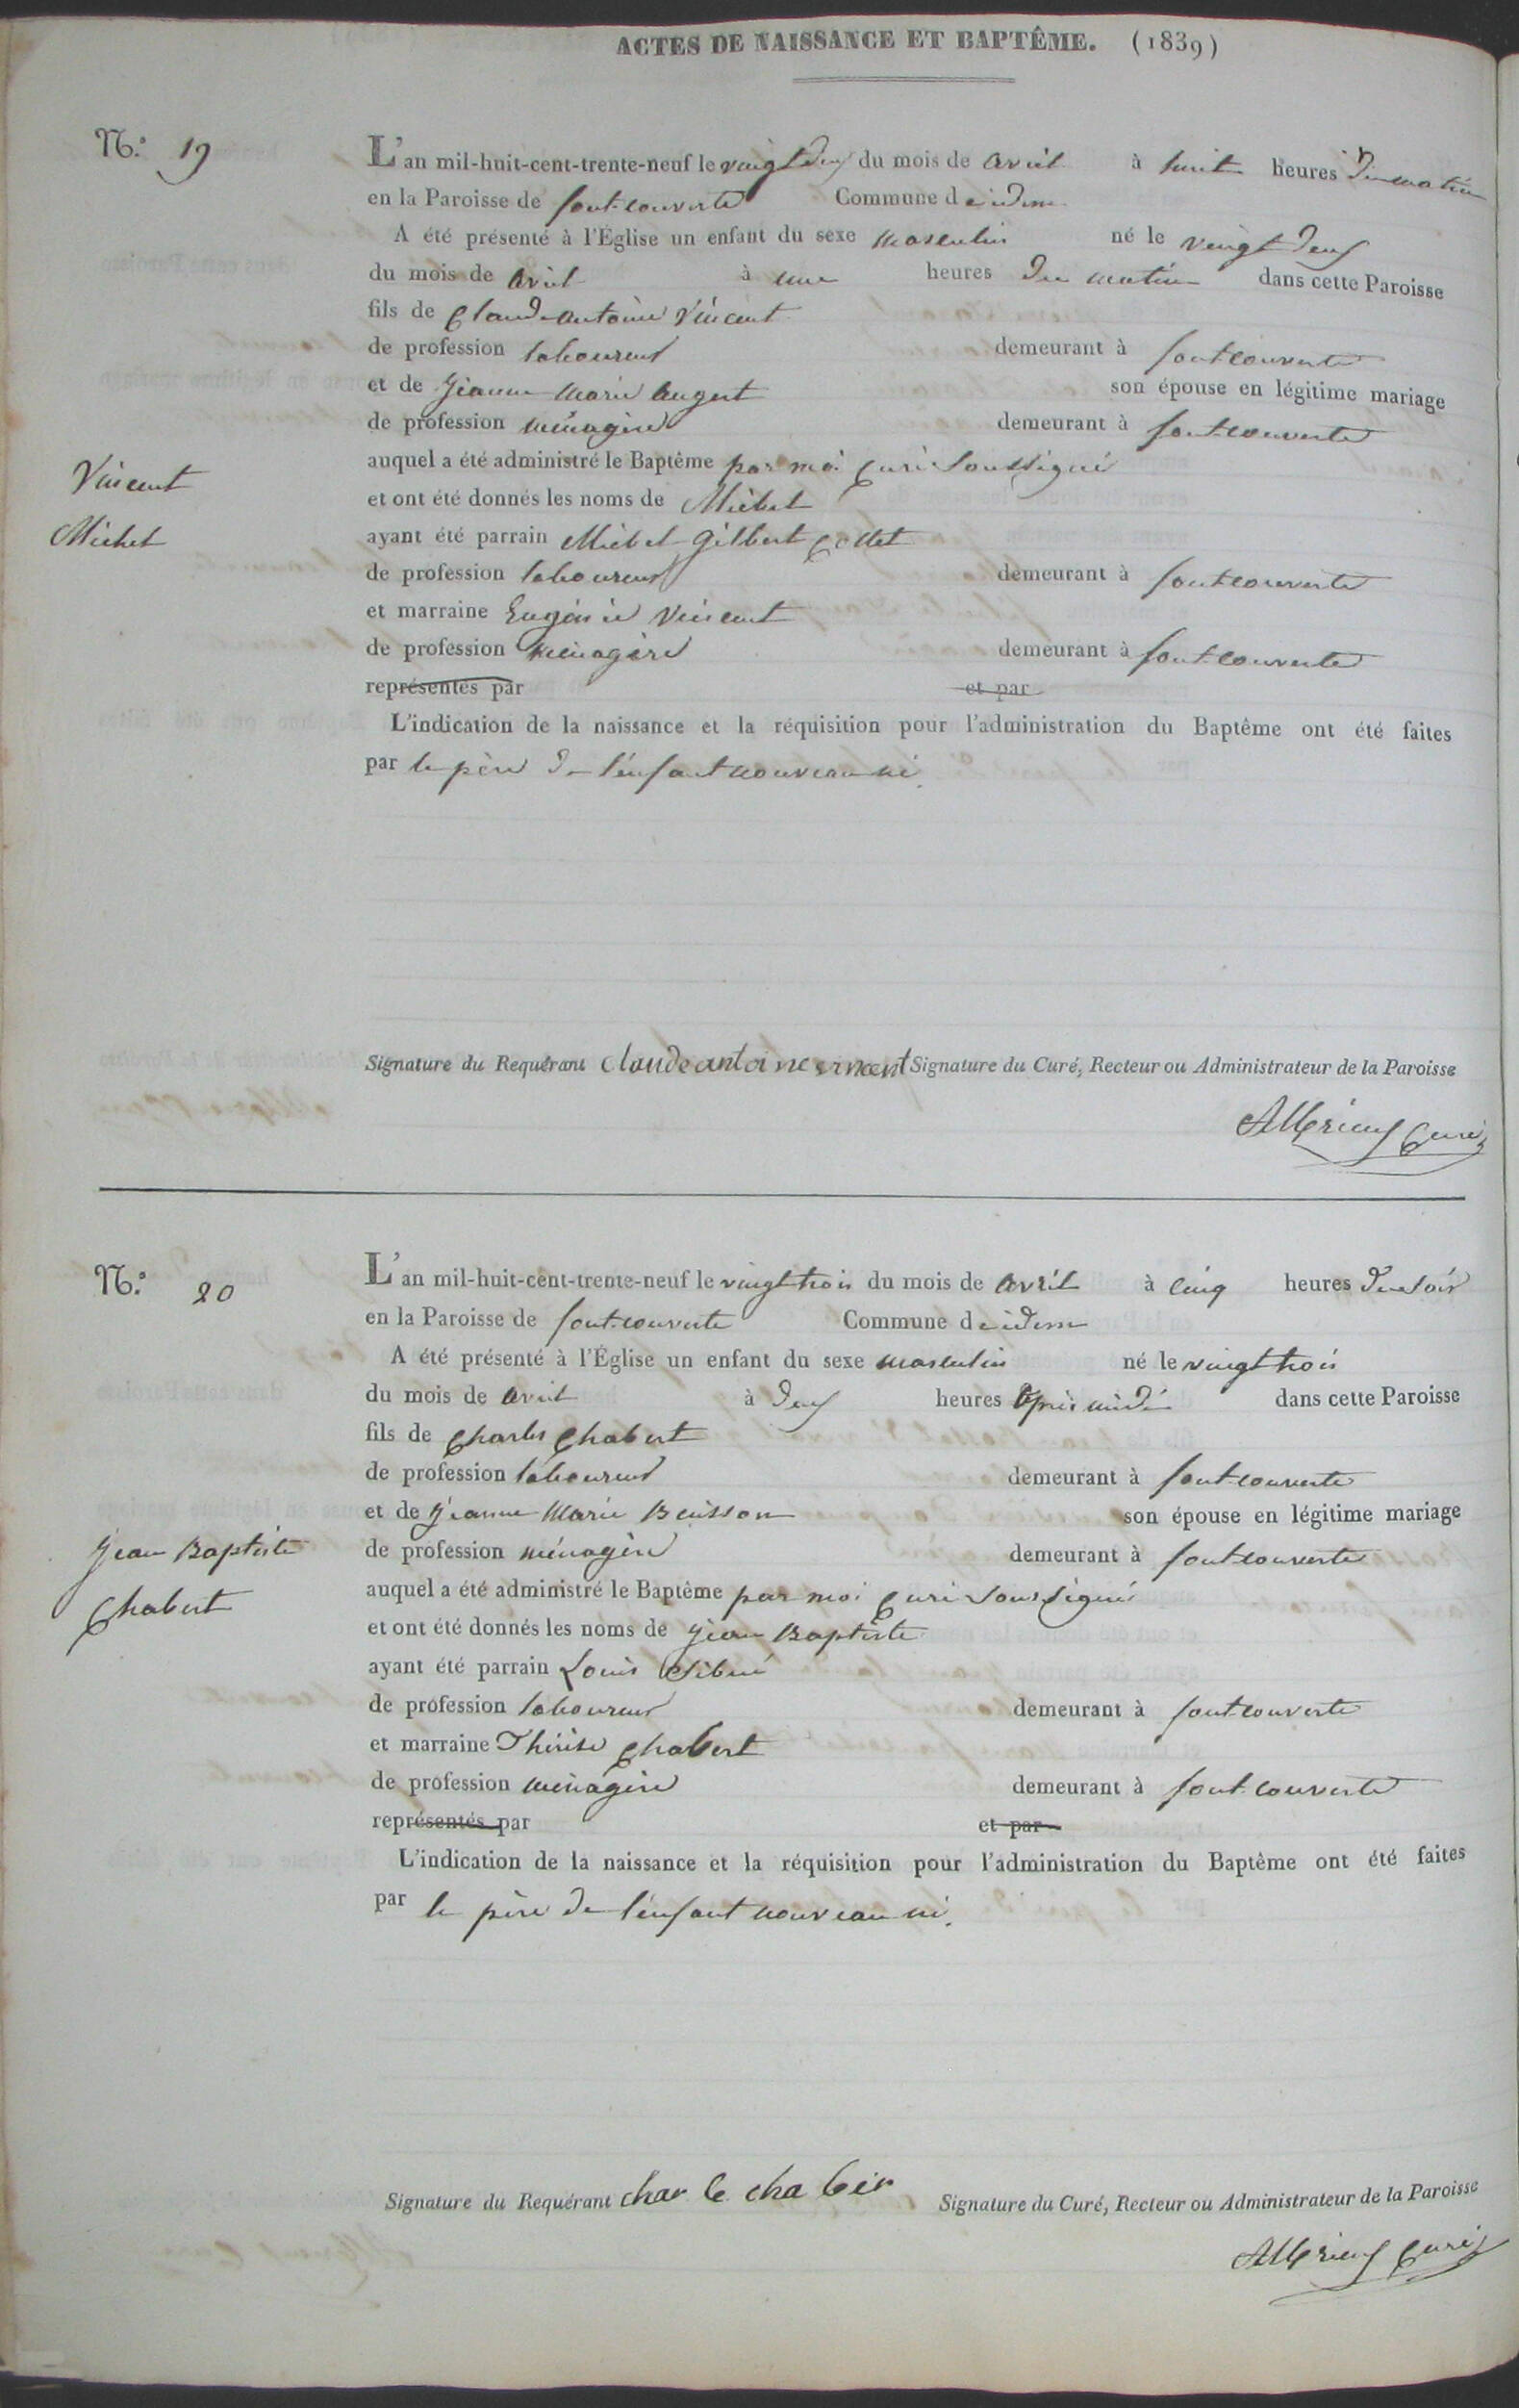 ACTES DE NAISSANCE ET BAPTÊME. (1839)
N.º 19
L'an mil-huit-cent-trente-neuf le vingt deux du mois de avril à huit heures du matin
en la Paroisse de font-couverte Commune de idem
A été présenté à l'Église un enfant du sexe masculin né le vingt deux
du mois de avril à une heures du matin dans cette Paroisse
fils de Claude antoine Vincent
de profession laboureur demeurant à fontcouverte
et de Jeanne Marie augert son épouse en légitime mariage
de profession ménagère demeurant à fontcouverte
auquel a été administré le Baptême par moi curé soussigné
Vincent
et ont été donnés les noms de Michel
Michel
ayant été parrain Michel Gilbert collet
de profession laboureur demeurant à fontcouverte
et marraine Eugénie Vincent
de profession ménagère demeurant à font-couverte
représentés par et par
L'indication de la naissance et la réquisition pour l'administration du Baptême ont été faites
par le père de l'enfant nouveau né.
Signature du Requérant claude antoine vincent Signature du Curé, Recteur ou Administrateur de la Paroisse
curé
N.º 20
L'an mil-huit-cent-trente-neuf le vingt trois du mois de avril à cinq heures du soir
en la Paroisse de font-couverte Commune de idem
A été présenté à l'Église un enfant du sexe masculin né le vingt trois
du mois de avril à deux heures après midi dans cette Paroisse
fils de Charles Chabert
de profession laboureur demeurant à font-couverte
et de Jeanne Marie Buisson son épouse en légitime mariage
Jean Baptiste
de profession ménagère demeurant à font-couverte
Chabert
auquel a été administré le Baptême par moi curé soussigné
et ont été donnés les noms de Jean Baptiste
ayant été parrain Louis Sibué
de profession laboureur demeurant à font-couverte
et marraine Thérèse Chabert
de profession ménagère demeurant à font-couverte
représentés par et par
L'indication de la naissance et la réquisition pour l'administration du Baptême ont été faites
par le père de l'enfant nouveau né.
Signature du Requérant char le cha ber Signature du Curé, Recteur ou Administrateur de la Paroisse
curé